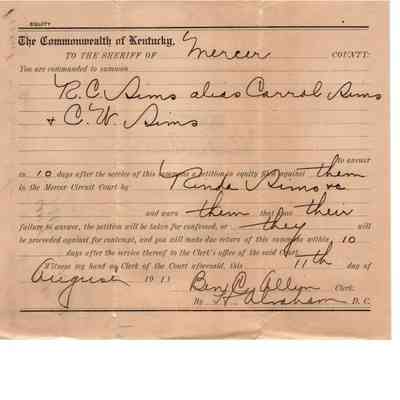 EQUITY
The Commonwealth of Kentucky,
TO THE SHERIFF OF Mercer COUNTY:
You are commanded to summon
R. C. Sims alias Carrol Sims
& C. W. Sims
to answer
in 10 days after the service of this summons a petition in equity filed against them
in the Mercer Circuit Court by Rinda Sims &c
and warn them that upon their
failure to answer, the petition will be taken for confessed, or they will
be proceeded against for contempt, and you will make due return of this summons within 10
days after the service thereof to the Clerk's office of the said Court.
Witness my hand as Clerk of the Court aforesaid, this 11th day of
August 1911 Ben C. Allin Clerk.
By H. Abraham D. C.